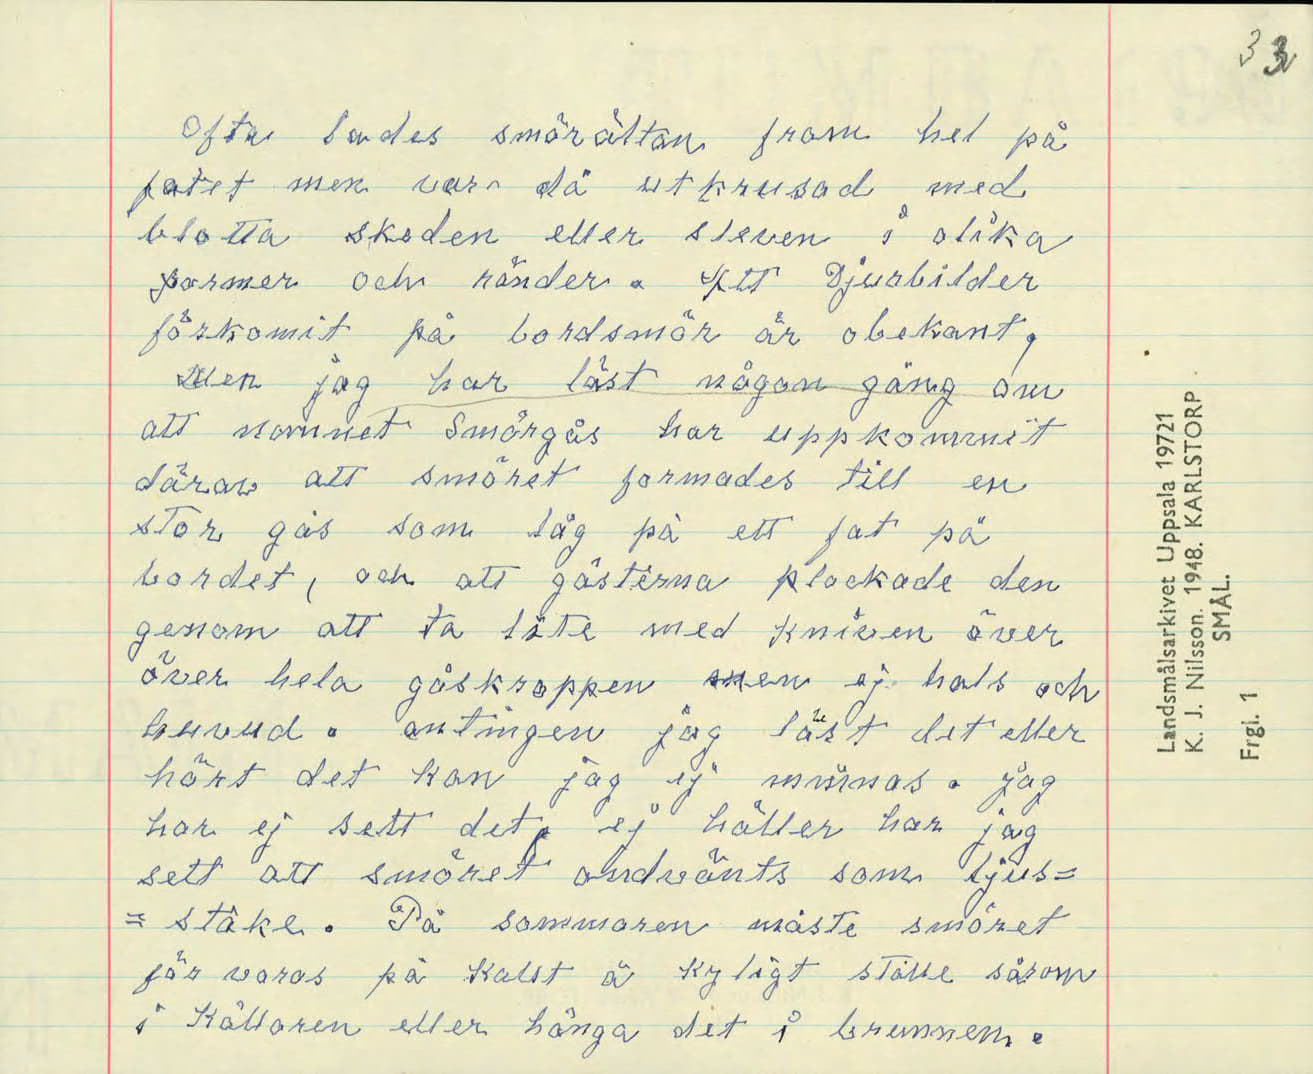 33
Ofta lades smörältan fram hel på
fatet men var då utkrusad med
blotta skeden eller sleven i olika
former och ränder. Att Djurbilder
förkomit på bordsmör är obekant,
Men jag har läst någon gång om
att namnet Smörgås har uppkommit
därav att smöret formades till en
stor gås som låg på ett fat på
bordet, och att gästerna plockade den
genom att ta lite med kniven över
över hela gåskroppen men ej hals och
huvud. antingen jag läst det eller
hört det kan jag ej minnas. jag
har ej sett det, ej häller har jag
sett att smöret andvänts som ljus=
=stake. På sommaren måste smöret
för varas på kalt å kyligt ställe såsom
i Källaren eller hänga det i brunnen.
Landsmålsarkivet Uppsala 19721
K. J. Nilsson. 1948. KARLSTORP
SMÅL.
Frgl. 1